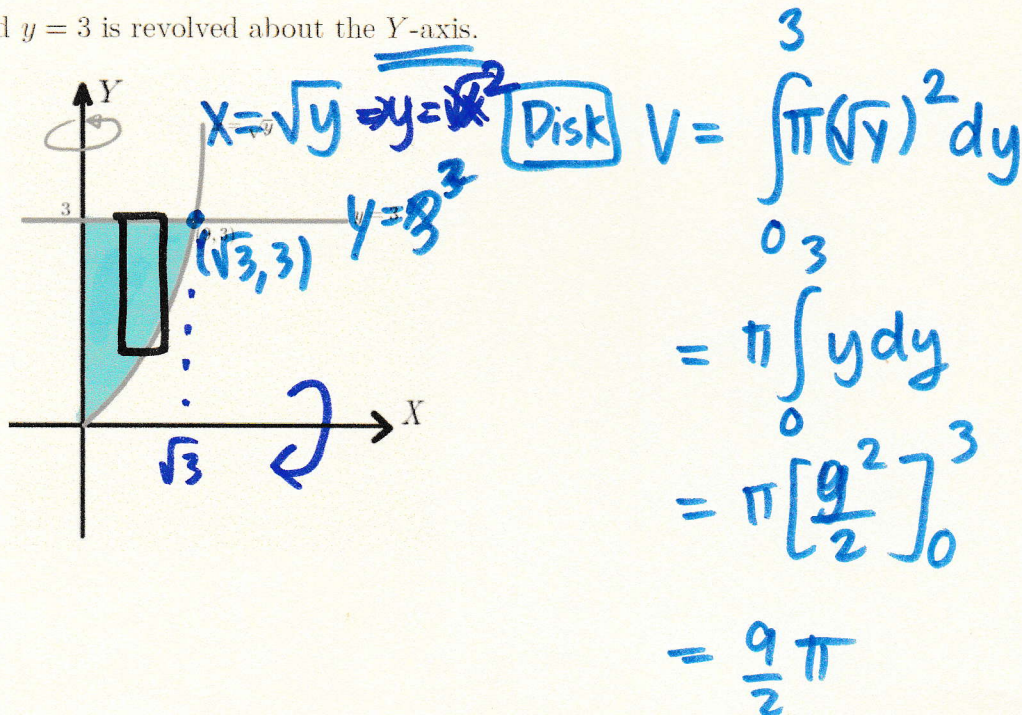 y = 3 is revolved about the Y-axis.
Y
X=√y ⇒ y=x²
Disk
V = ∫₀³ π(√y)² dy
3
y=3
(√3, 3)
= π ∫₀³ y dy
X
√3
= π [y²/2]₀³
= 9/2 π